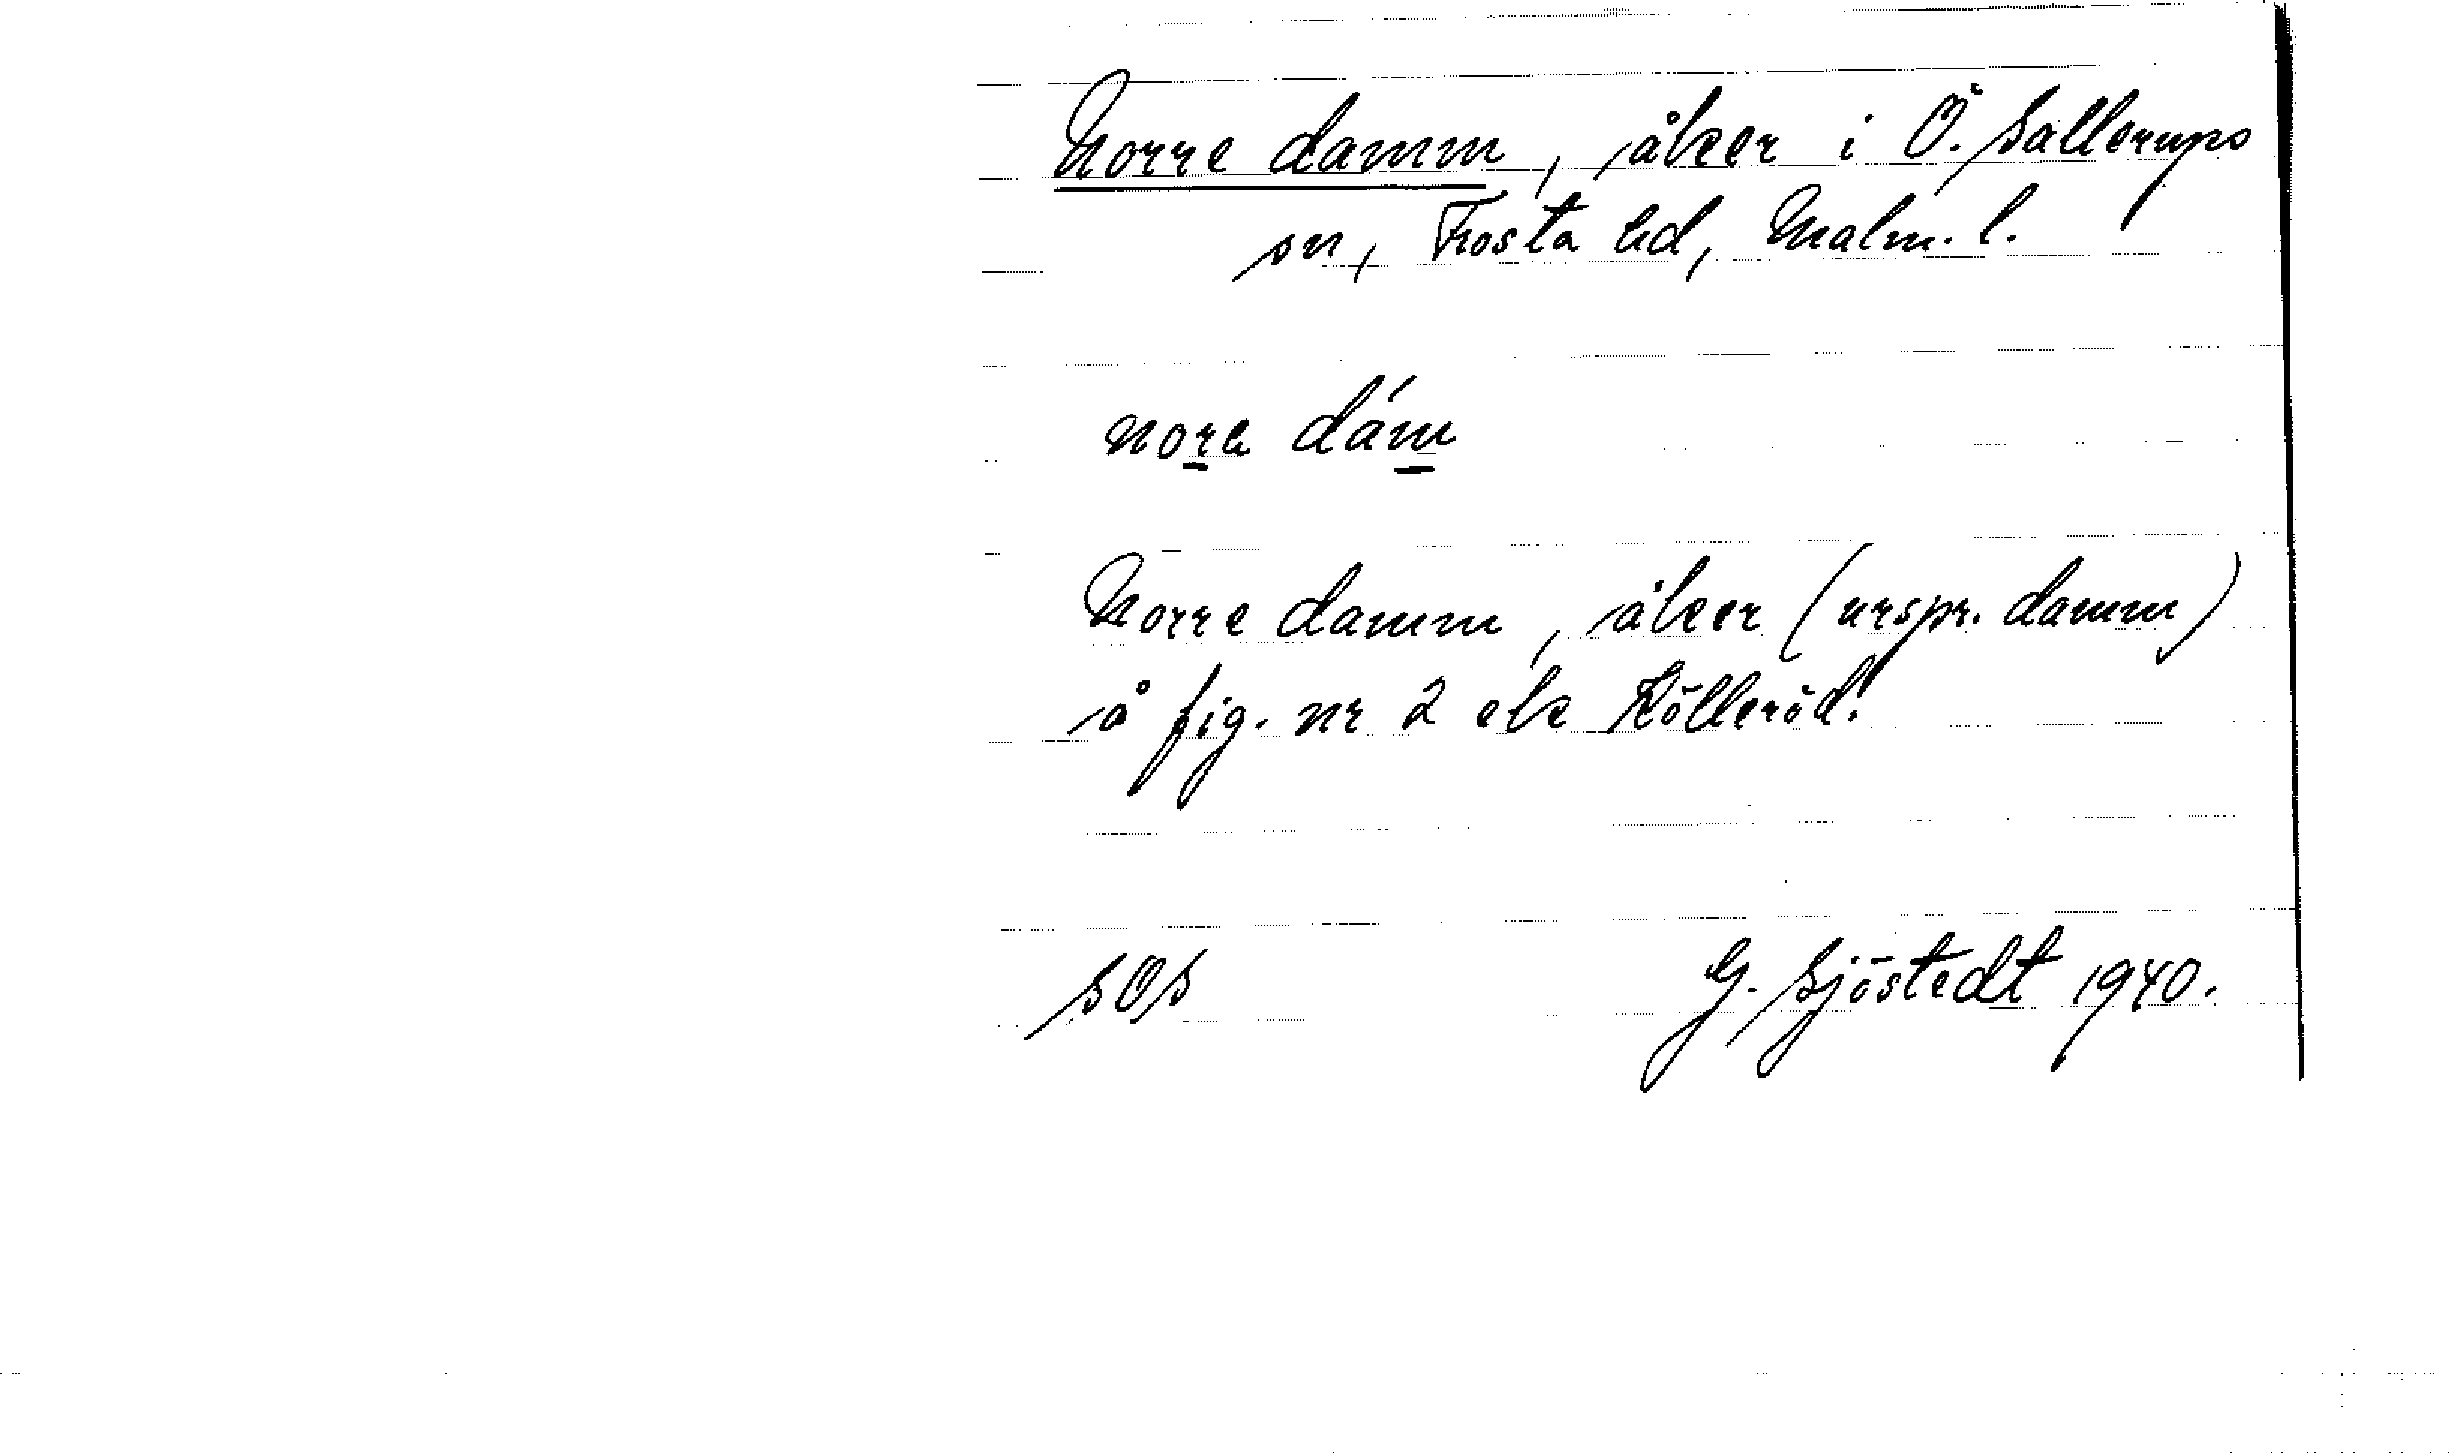 Norre damm, åker i Ö. Sallerups
sn, Frosta hd, Malm. l.
nora dám
Norre damm, åker (urspr. damm)
å fig. nr 2 ek Kölleröd.
SOS
G. Sjöstedt 1940.